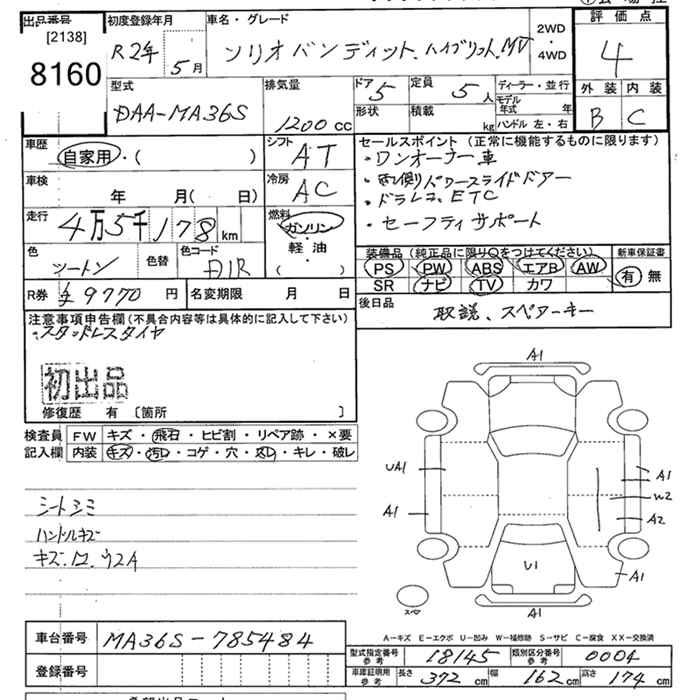 出品番号 初度登録年月 車名・グレード 評価点
[2138] R2年 5月 ソリオバンディット.ハイブリットMV 2WD・4WD 4
8160
型式 排気量 ドア 5 定員 5人 ディーラー・並行 外装 内装
DAA-MA36S 1200cc 形状 積載 kg モデル年式 年 B C
ハンドル 左・右
車歴 シフト セールスポイント (正常に機能するものに限ります)
自家用・( ) AT ・ワンオーナー車
車検 冷房 両側パワースライドドアー
年 月( 日) AC ・ドラレコ、ETC
走行 燃料 ・セーフティサポート
4万5千178km ガソリン・軽・油( )
色 色替 色コード 装備品 (純正品に限り○をつけてください) 新車保証書
ツートン A1R PS PW ABS エアB AW 有 無
SR ナビ TV カワ
R券 ¥9770円 名変期限 月 日 後日品 取説、スペアーキー
注意事項申告欄 (不具合内容等は具体的に記入して下さい)
・スタッドレスタイヤ
初出品
修復歴 有 〔箇所 〕
検査員 FW キズ・飛石・ヒビ割・リペア跡・×要
記入欄 内装 キズ・汚レ・コゲ・穴・スレ・キレ・破レ
A1
UA1 A1
W2
A1 A2
U1 A1
A1
スペ
シートシミ
ハンドルキズ
A－キズ E－エクボ U－凹み W－補修跡 S－サビ C－腐食 XX－交換済
車台番号 MA36S-785484
型式指定番号 参考 18145 類別区分番号 参考 0004
登録番号
車庫証明用 参考 長さ 372cm 幅 162cm 高さ 174cm